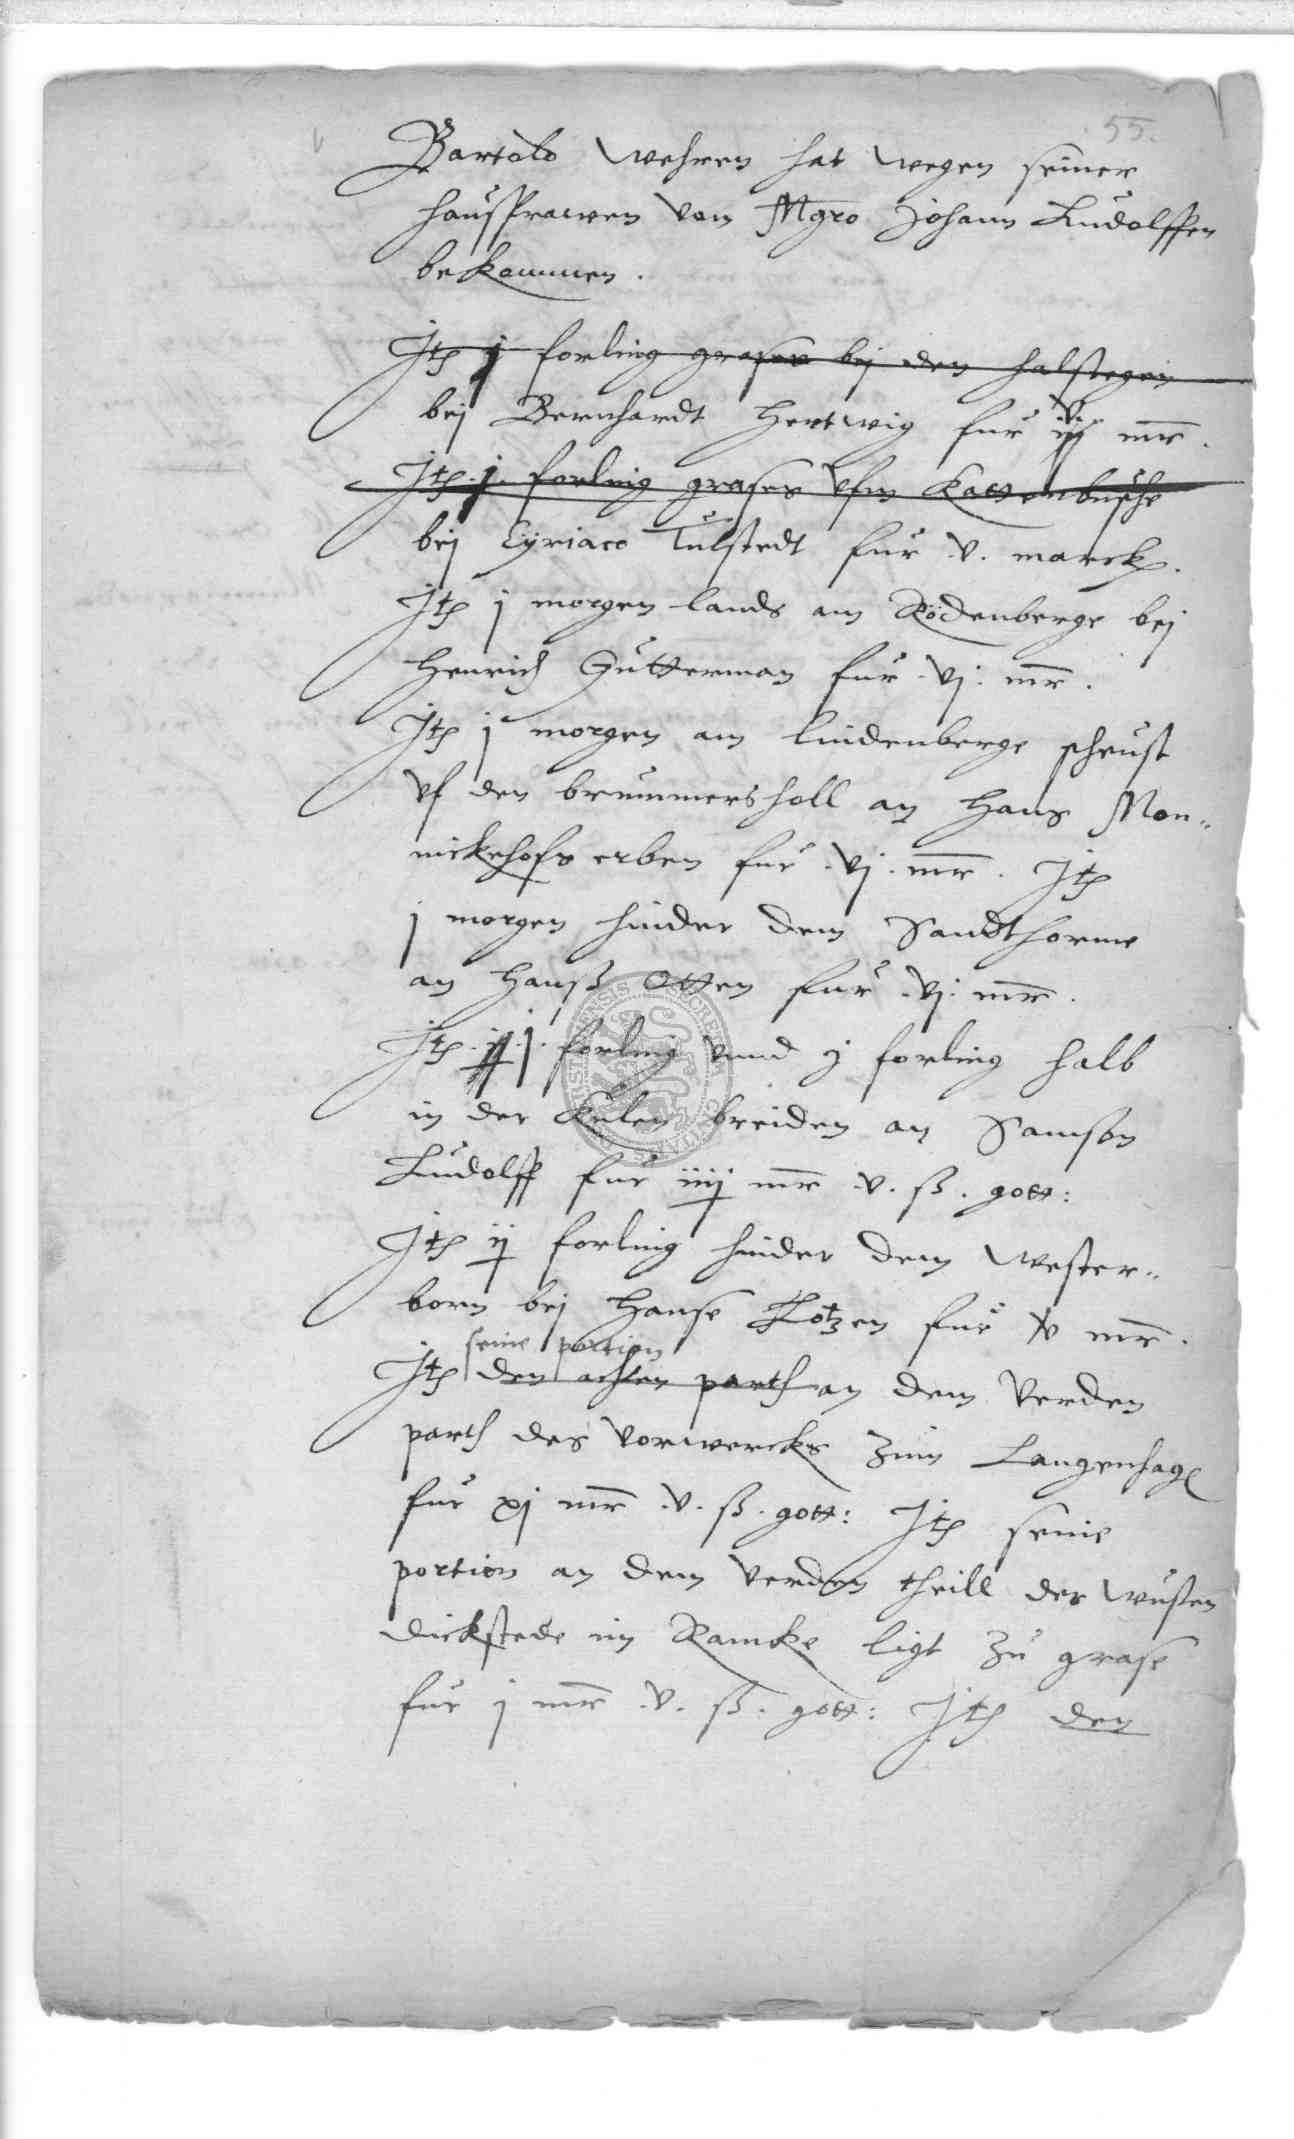 55.
Bartold Wehren hat wegen seiner
hausfrawen von Mgro Johann Ludolffen
bekommen.
Jtem j forling grases bej den halstegen
bej Bernhardt Hertwig fur v. iij mr.
Jtem j. forling grases vfm Kattenbusche
bej Cyriaco Tulstedt fur .v. marck.
Jtem j morgen lands am Rodenberge bej
Henrich Gutterman fur .vj. mr.
Jtem j morgen am lindenberge scheust
vf den brummersholl an Hans Mon„
nickehofs erben fur .vj. mr. Jtem
j morgen hinder dem Sandthorme
an Hanß Otten fur .vj. mr.
Jtem .j. forling vnnd j forling halb
in der Kulen breiden an Samson
Ludolff fur iiij mr .v. ß. gott:
Jtem ij forling hinder dem Wester„
born bej Hanse Kotzen fur v mr.
seine portion
Jtem den achten parth an dem verden
parth des vorwercks zum Langenhagen
fur xj mr .v. ß. gott: Jtem seine
portion an dem verden theill der wusten
dickstede im Ramke ligt zu grase
fur j mr .v. ß. gott: Jtem den